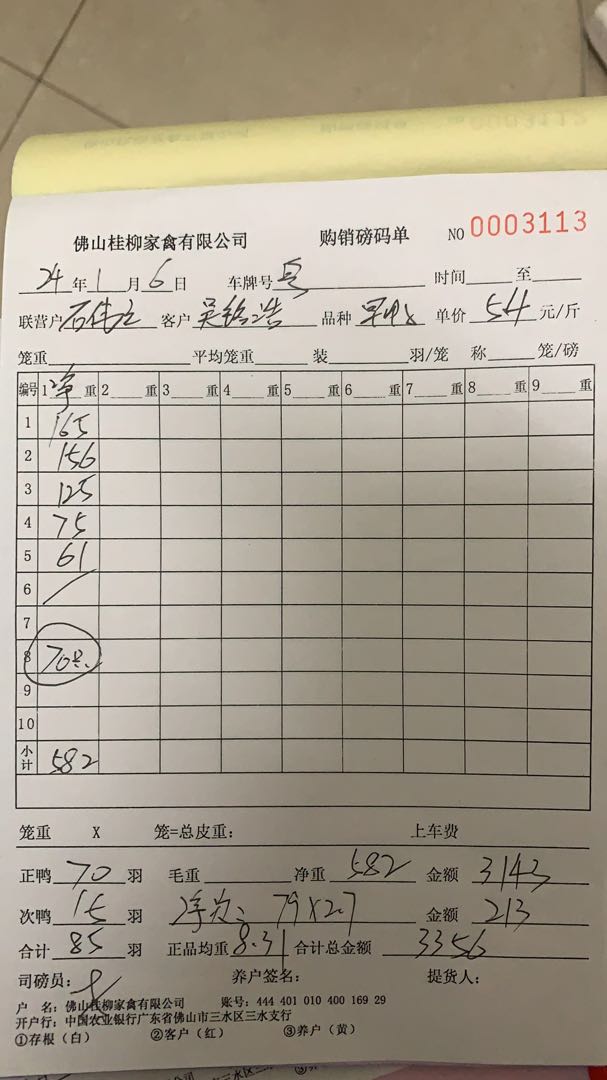 0003112
佛山桂柳家禽有限公司 购销磅码单 NO 0003113
24 年 1 月 6 日 车牌号 时间 至
联营户 客户 吴铭浩 品种 单价 5.4 元/斤
笼重 平均笼重 装 羽/笼 称 笼/磅
编号 1 净 重 2 重 3 重 4 重 5 重 6 重 7 重 8 重 9 重
1 165
2 156
3 125
4 75
5 61
6
7
8 70只
9
10
小计 582
笼重 X 笼=总皮重: 上车费
正鸭 70 羽 毛重 净重 582 金额 3143
次鸭 15 羽 净次: 79×2.7 金额 213
合计 85 羽 正品均重 8.31 合计总金额 3356
司磅员: 养户签名: 提货人:
户 名: 佛山桂柳家禽有限公司 账号: 444 401 010 400 169 29
开户行: 中国农业银行广东省佛山市三水区三水支行
①存根(白) ②客户(红) ③养户(黄)